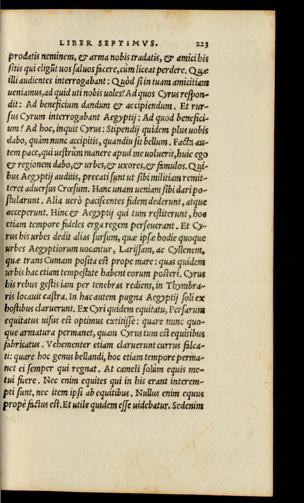 LIBER SEPTIMVS. 223
prodatis neminem, & arma nobis tradatis, & amici his
sitis qui eligūt uos saluos facere, cùm liceat perdere. Quæ
illi audientes interrogabant: Quòd si in tuam amicitiam
ueniamus, ad quid uti nobis uoles? Ad quos Cyrus respon-
dit: Ad beneficium dandum & accipiendum. Et rur-
sus Cyrum interrogabant Aegyptij: Ad quod benefici-
um? Ad hoc, inquit Cyrus: Stipendij quidem plus uobis
dabo, quàm nunc accipitis, quandiu sit bellum. Facta au-
tem pace, qui uestrûm manere apud me uoluerit, huic ego
& regionem dabo, & urbes, & uxores, & famulos. Qui-
bus Aegyptij auditis, precati sunt ut sibi militiam remit-
teret aduersus Crœsum. Hanc unam ueniam sibi dari po-
stularunt. Alia uerò paciscentes fidem dederunt, atque
acceperunt. Hinc & Aegyptij qui tum restiterunt, hoc
etiam tempore fideles erga regem perseuerant. Et Cy-
rus his urbes dedit alias sursum, quæ ipsæ hodie quoque
urbes Aegyptiorum uocantur, Larissam, ac Cyllenem,
quæ trans Cumam posita est prope mare: quas quidem
urbis hac etiam tempestate habent eorum posteri. Cyrus
his rebus gestis iam per tenebras rediens, in Thymbra-
ris locauit castra. In hac autem pugna Aegyptij soli ex
hostibus claruerunt. Ex Cyri quidem equitatu, Persarum
equitatus uisus est optimus extitisse: quare nunc quo-
que armatura permanet, quam Cyrus tum est equitibus
fabricatus. Vehementer etiam claruerunt currus falca-
ti: quare hoc genus bellandi, hoc etiam tempore perma-
net ei semper qui regnat. At cameli solùm equis me-
tui fuere. Nec enim equites qui in his erant interem-
pti sunt, nec item ipsi ab equitibus. Nullus enim equus
propè factus est. Et utile quidem esse uidebatur. Sed enim